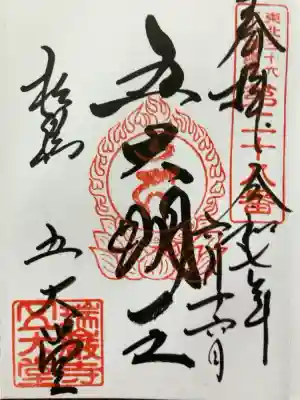 奉拝
令和七年
六月十六日
東北三十六
第二十八番
五大明王
松島
五大堂
瑞巌寺
五大堂